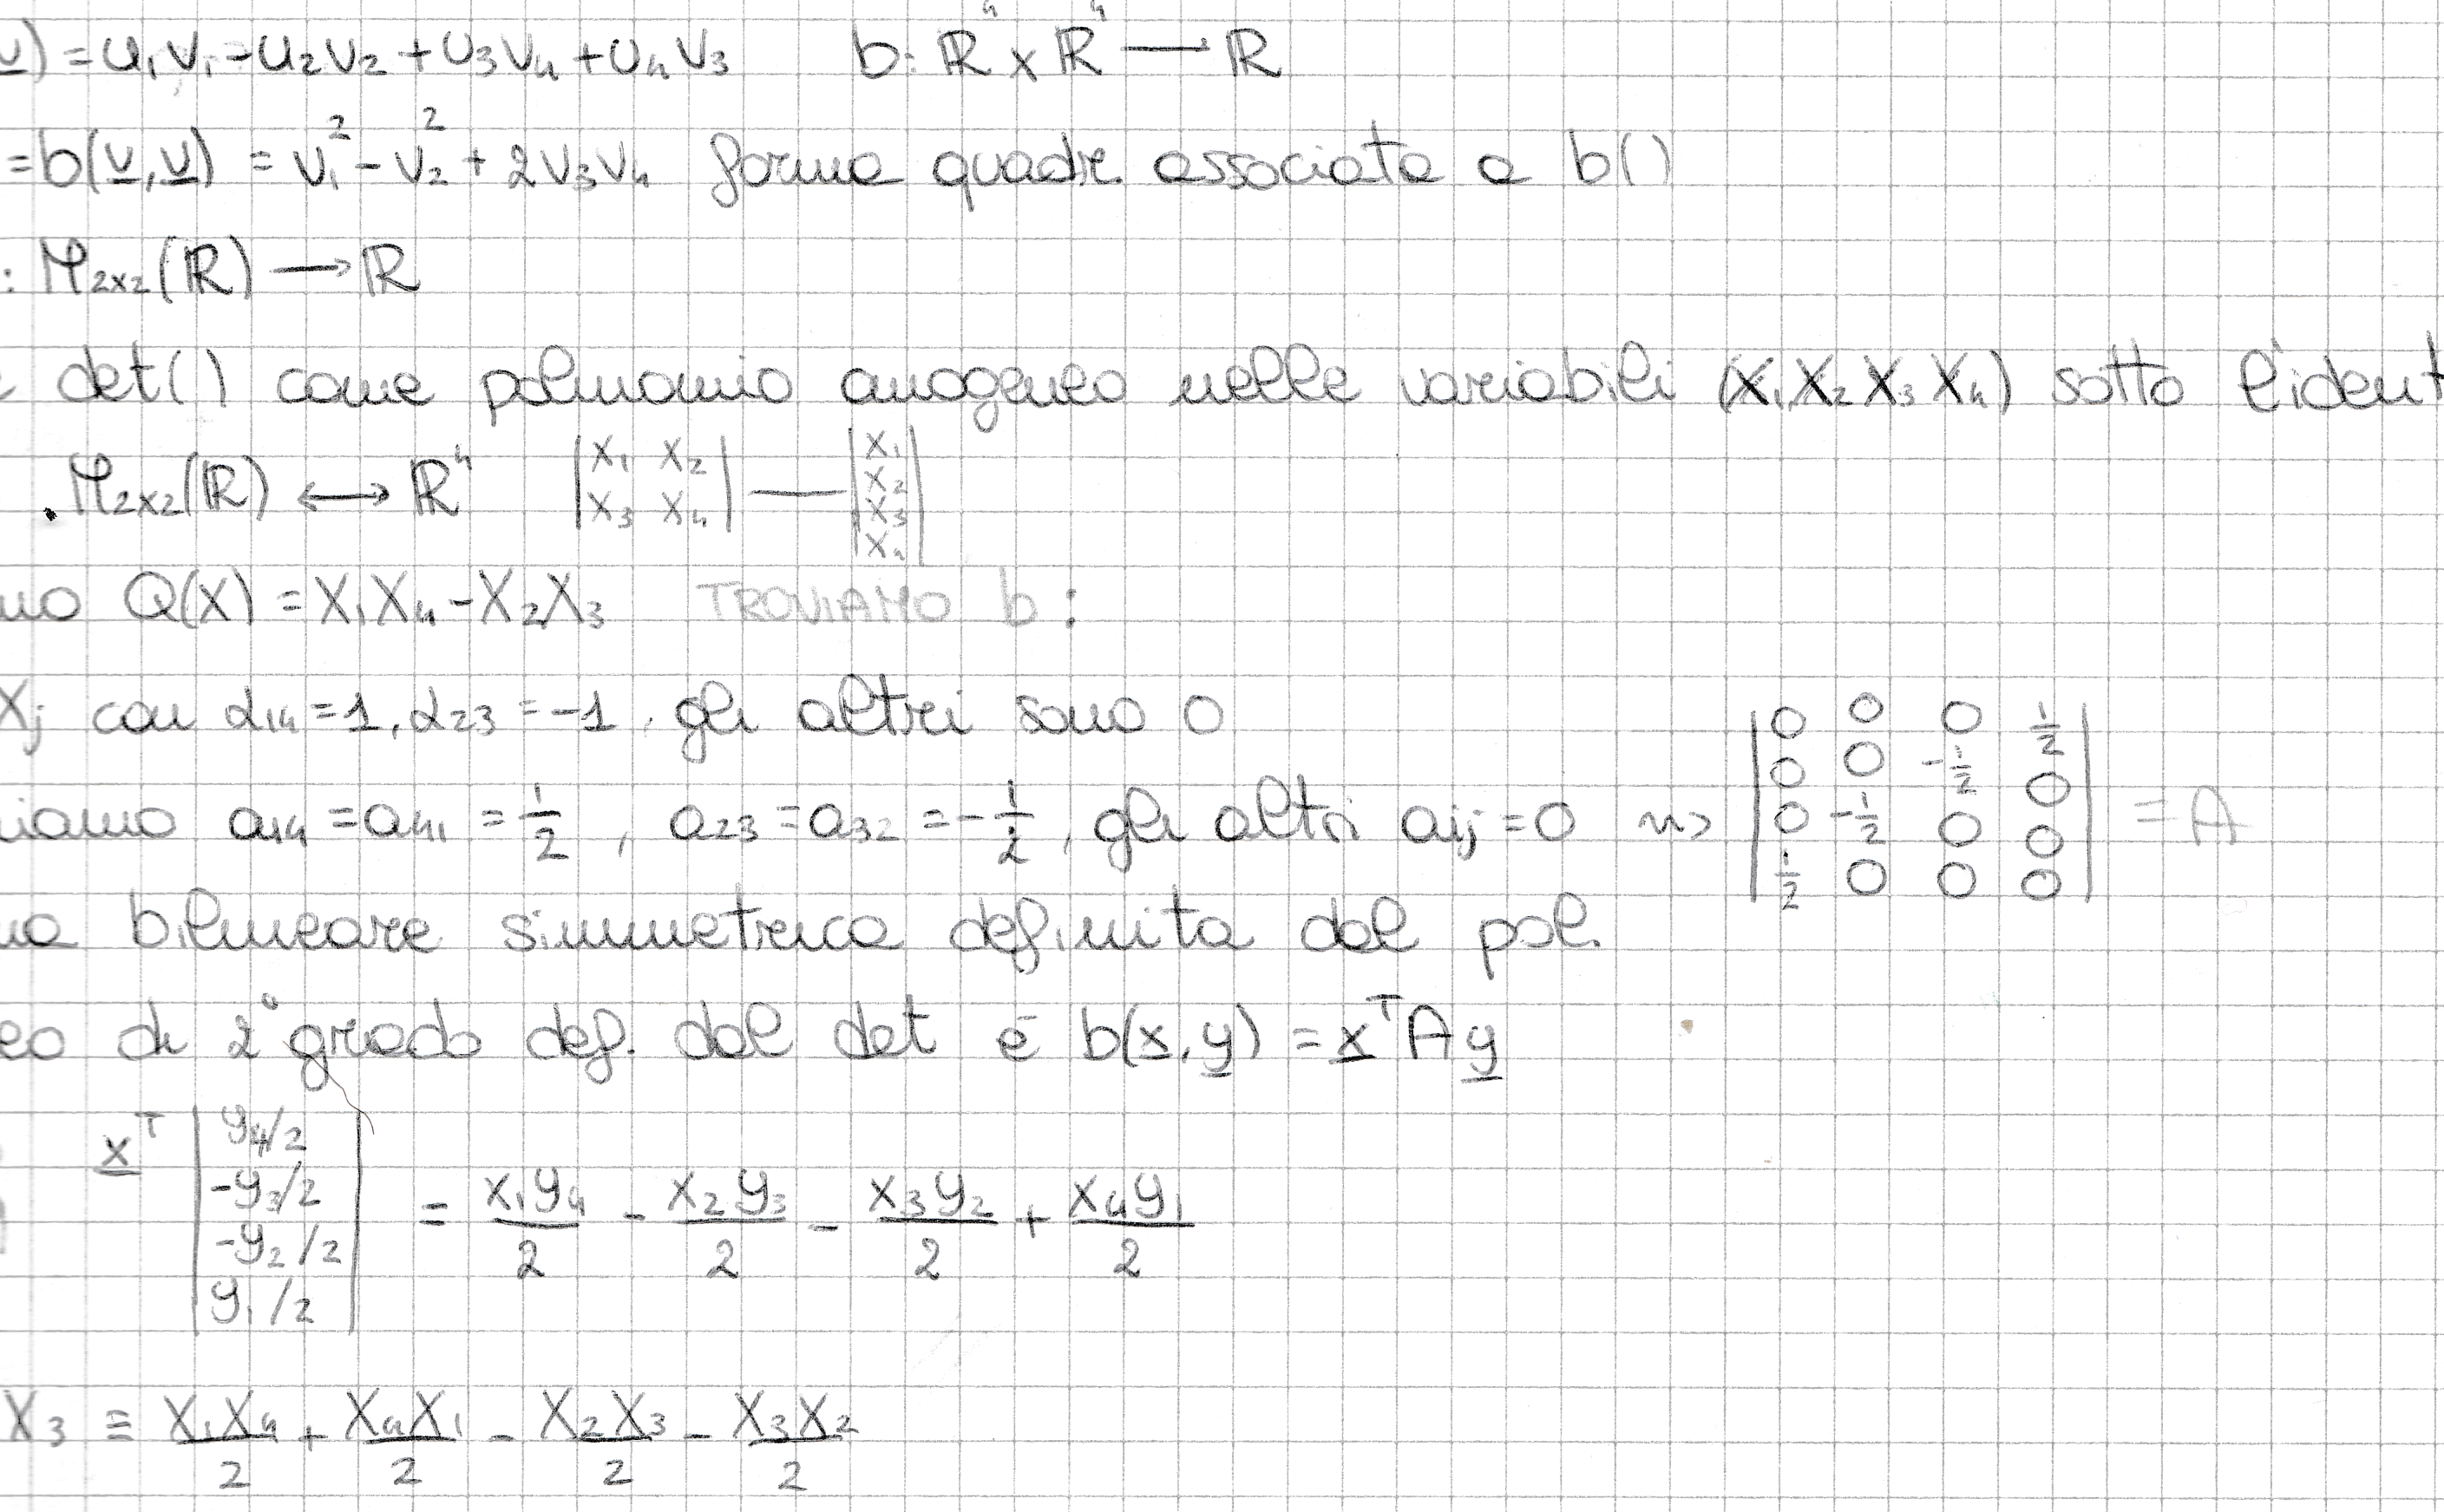 v) = u₁v₁ - u₂v₂ + u₃v₄ + u₄v₃ b: ℝ⁴ x ℝ⁴ — ℝ
= b(v, v) = v₁² - v₂² + 2v₃v₄ forma quadr. associata a b()
: M₂ₓ₂(ℝ) → ℝ
det() come polinomio omogeneo nelle variabili (X₁ X₂ X₃ X₄) sotto l'ident
. M₂ₓ₂(ℝ) ↔ ℝ⁴ | X₁ X₂ | — | X₁ |
| X₃ X₄ | | X₂ |
| X₃ |
| X₄ |
mo Q(X) = X₁X₄ - X₂X₃ TROVIAMO b:
Xj con α₁₄ = 1, α₂₃ = -1, gli altri sono 0
iamo a₁₄ = a₄₁ = 1/2, a₂₃ = a₃₂ = -1/2, gli altri aij = 0 ~>
| 0 0 0 1/2 |
| 0 0 -1/2 0 |
| 0 -1/2 0 0 | = A
| 1/2 0 0 0 |
ma bilineare simmetrica definita dal pol.
eo di 2° grado def. dal det è b(x, y) = xᵀAy
xᵀ | y₄/2 |
| -y₃/2 |
| -y₂/2 | = x₁y₄/2 - x₂y₃/2 - x₃y₂/2 + x₄y₁/2
| y₁/2 |
X₃ = X₁X₄/2 + X₄X₁/2 - X₂X₃/2 - X₃X₂/2